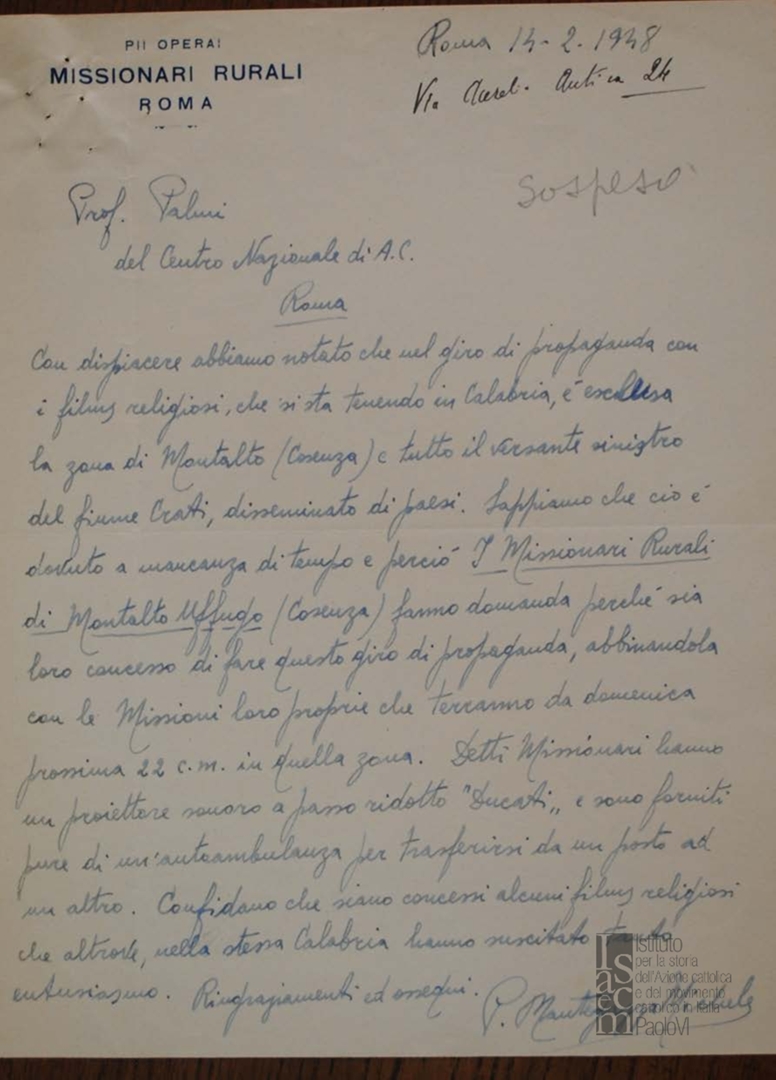 PII OPERAI
MISSIONARI RURALI
ROMA
Roma 14-2-1948
Via Aureli. Antica 24
Sospeso
Prof. Palmi
del Centro Nazionale di A.C.
Roma
Con dispiacere abbiamo notato che nel giro di propaganda con
i films religiosi, che si sta tenendo in Calabria, é esclusa
la zona di Montalto (Cosenza) e tutto il versante sinistro
del fiume Crati, disseminato di paesi. Sappiamo che ciò é
dovuto a mancanza di tempo e perciò I Missionari Rurali
di Montalto Uffugo (Cosenza) fanno domanda perché sia
loro concesso di fare questo giro di propaganda, abbinandola
con le Missioni loro proprie che terranno da domenica
prossima 22 c.m. in quella zona. Detti Missionari hanno
un proiettore sonoro a passo ridotto "Ducati„ e sono forniti
pure di un'autoambulanza per trasferirsi da un posto ad
un altro. Confidano che siano concessi alcuni films religiosi
che altrove, nella stessa Calabria hanno suscitato tanto
entusiasmo. Ringraziamenti ed ossequi.
P.
Isacem
Istituto
per la storia
dell'Azione cattolica
e del movimento
cattolico in Italia
PaoloVI